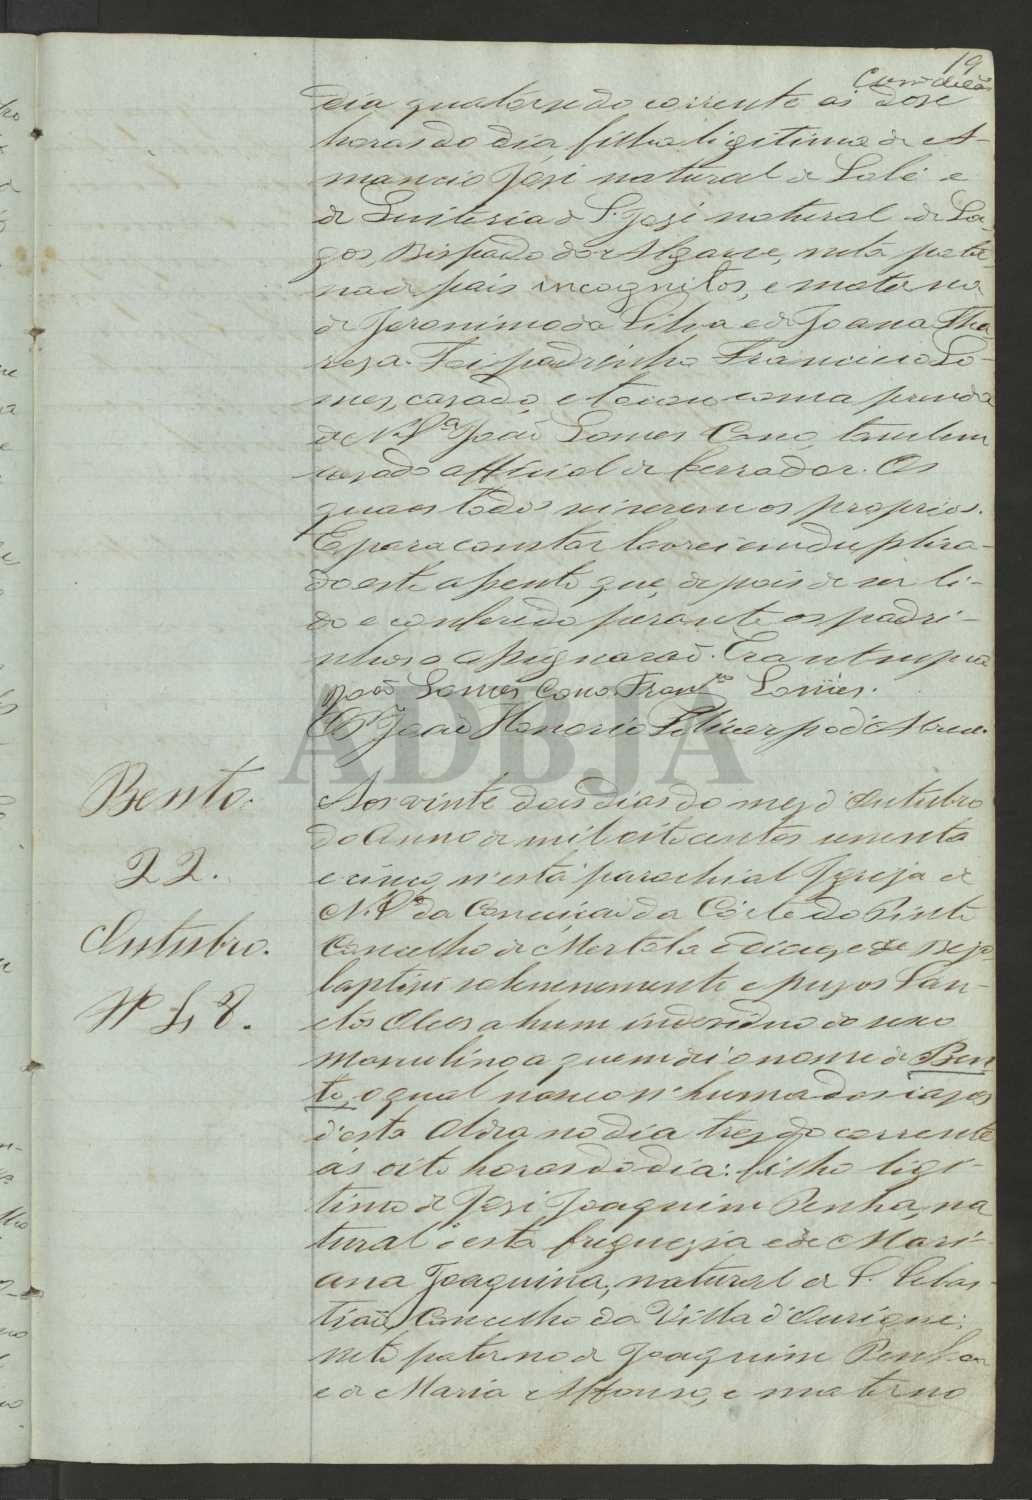 19
dia quatorse do corrente as dose
horas do dia, filha ligitima de A-
mancio José natural de Lolé e
de Quiteria de S. José natural de La-
gos, Bispado do Algarve, neta pater-
na de pais incognitos, e materna
de Jeronimo da Silva e de Joana The
resa. Foi padrinho Francisco Go-
mes, casado, e tocou com a prenda
de N. Sª João Gomes Cano, tambem
casado official de ferrador. Os
quaes todos sei serem os proprios.
E para constar lavrei em duplica-
do este assento que, depois de ser li-
do e conferido perante os padri-
nhos o assignarão. Era ut supra
João Gomes Cano Franco Gomes.
O Pr João Honorio Policarpo d'Abreu.
Bento.
22.
Outubro.
Nº 48.
Aos vinte dois dias do mez d'Outubro
do Anno de mil oito centos secenta
e cinco n'esta parochial Igreja de
N. Sª da Conceição da Côrte do Pinto
Concelho de Mertola e diocese de Beja
baptisei solemnemente e puz os San-
ctos Oleos a hum individuo do sexo
masculino a quem dei o nome de Ben
to, o qual nasceo n'huma das casas
d'esta Aldea no dia tres do corrente
ás oito horas do dia: filho ligi-
timo de José Joaquim Penha, na
tural d'esta freguezia e de Mari-
ana Joaquina, natural de S. Sebas-
tião, Concelho da Villa d'Ourique;
neto paterno de Joaquim Penha
e de Maria Affonso, e materno